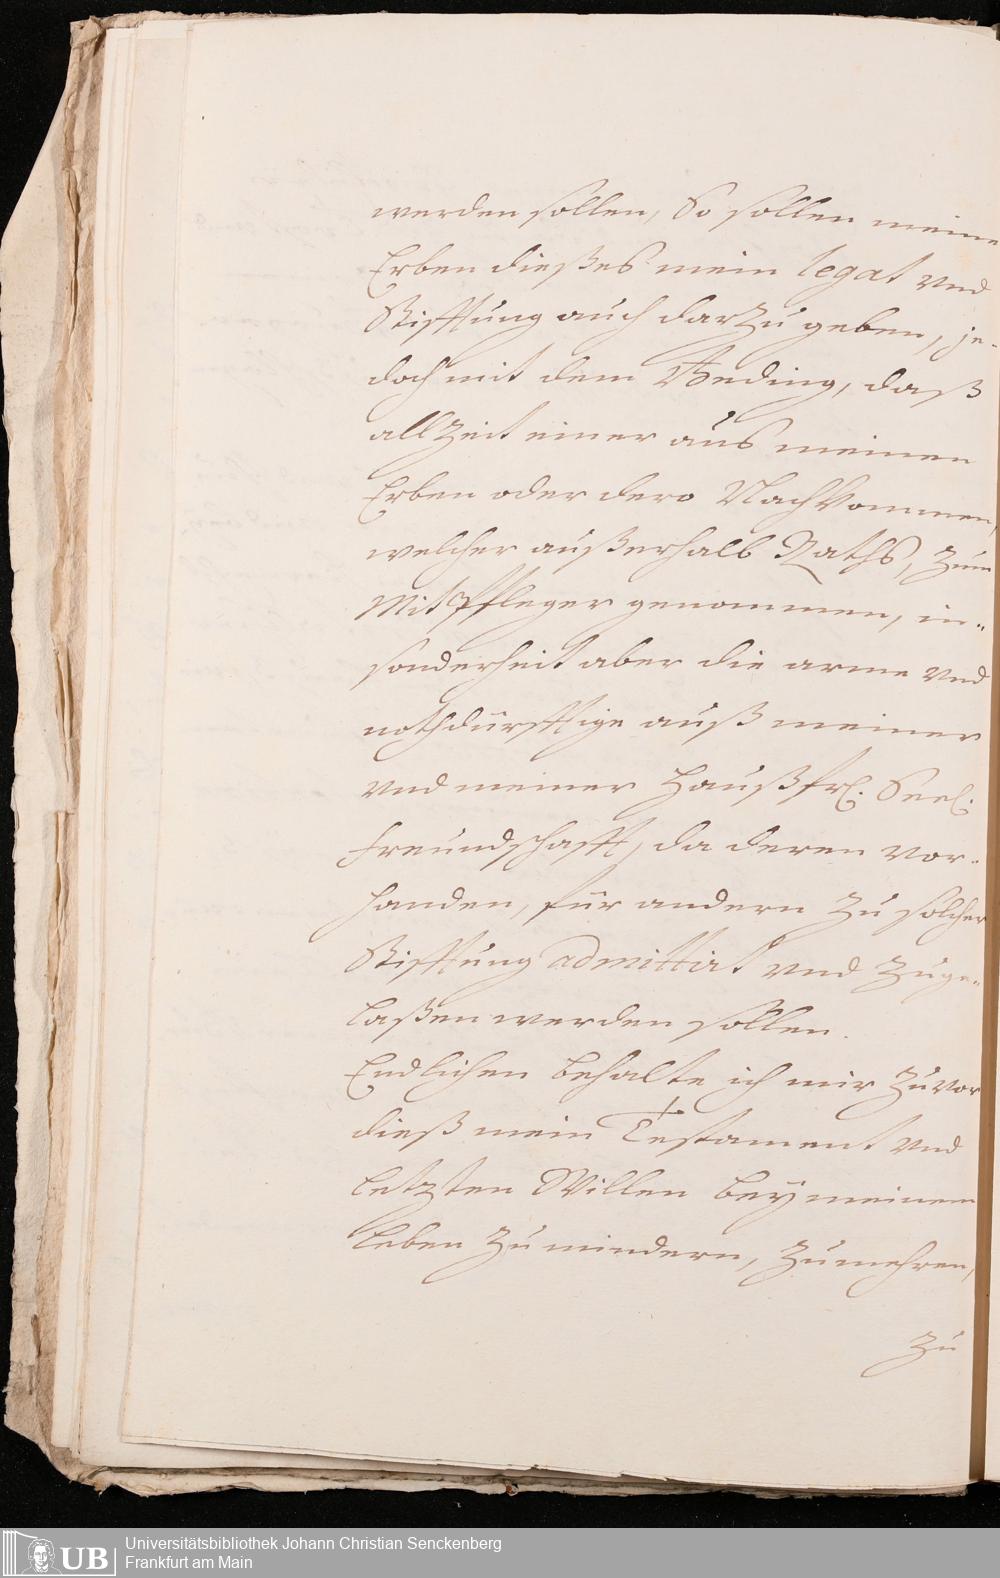 werden sollen, So sollen meine
Erben dießes mein legat vnd
Stifftung auch darzu geben, je-
doch mit dem Beding, daß
allzeit einer aus meinen
Erben oder dero Nachkommen,
welcher außerhalb Raths, zum
Mitpfleger genommen, in-
sonderheit aber die arme vnd
nothdürfftige auß meiner
vnd meiner Haußfr. Seel.
Freundschafft, da deren vor-
handen, für andern zu solcher
Stifftung admittirt vnd zuge-
laßen werden sollen.
Endlichen behalte ich mir zuvor
dieß mein Testament vnd
letzten Willen bey meinem
Leben zu mindern, zu mehren,
zu
UB
Universitätsbibliothek Johann Christian Senckenberg
Frankfurt am Main